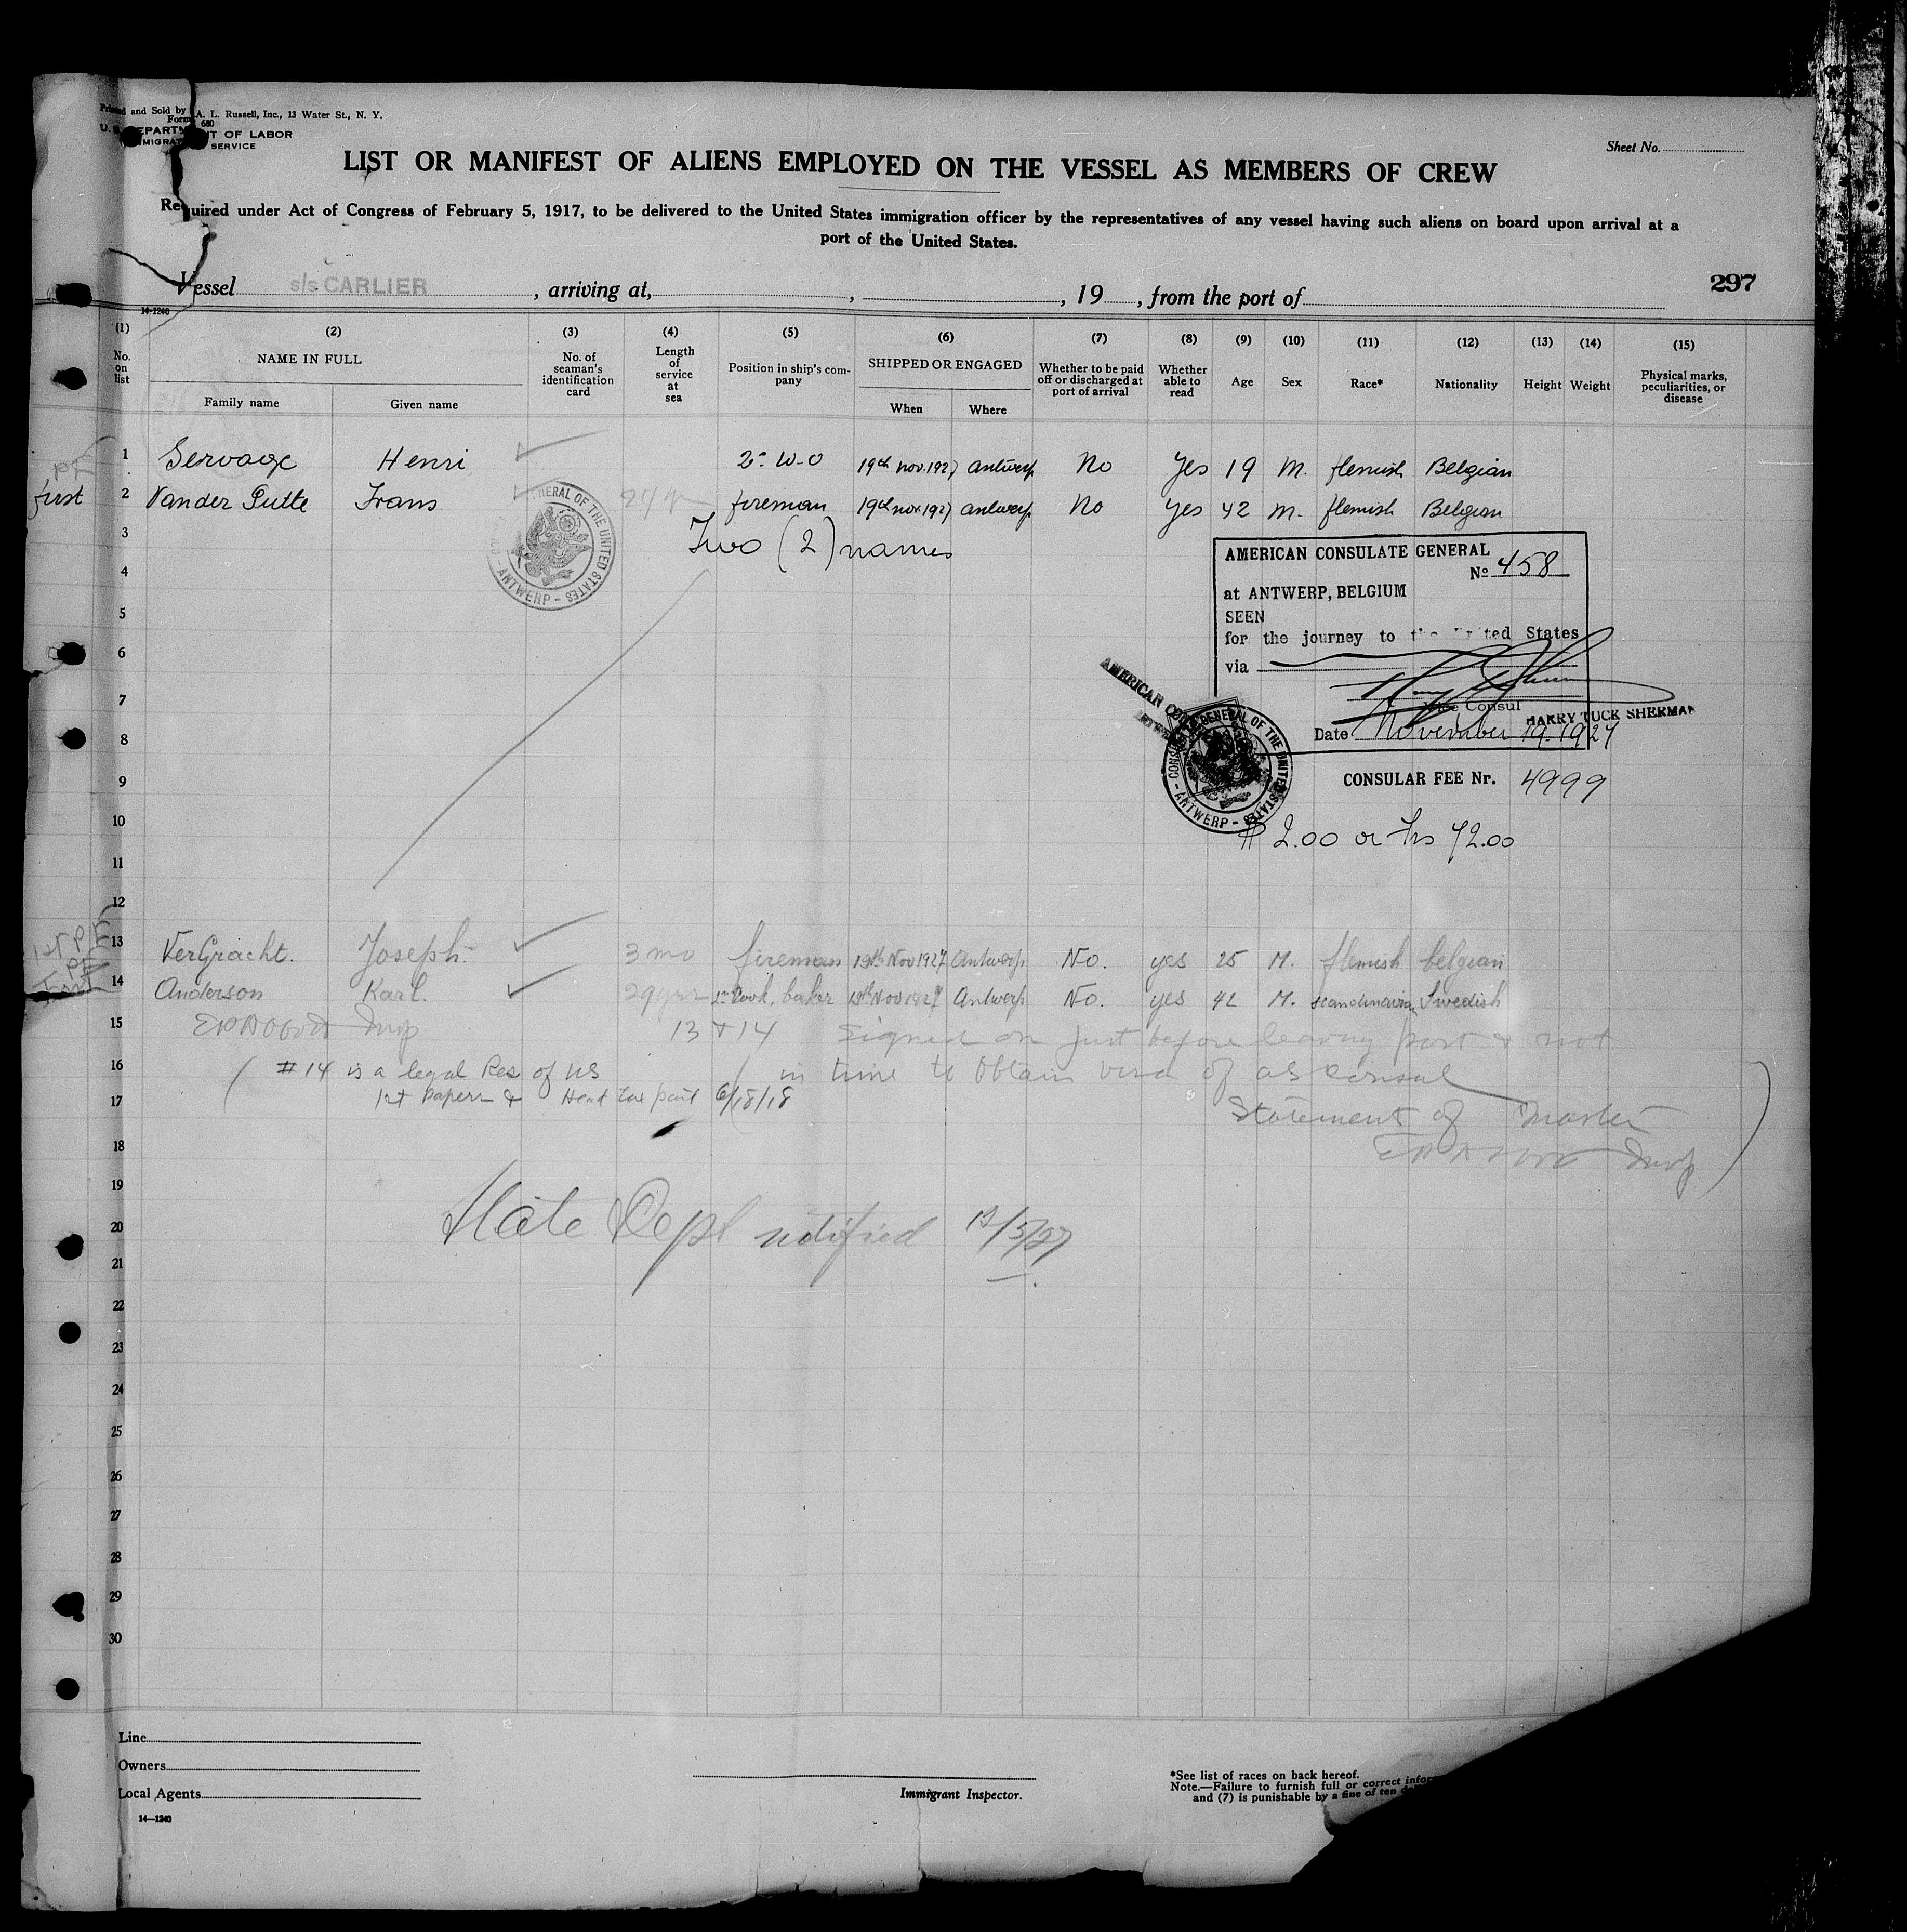 Printed and Sold by A. L. Russell, Inc., 13 Water St., N. Y.
Form 680
U. S. DEPARTMENT OF LABOR
IMMIGRATION SERVICE
Sheet No.
LIST OR MANIFEST OF ALIENS EMPLOYED ON THE VESSEL AS MEMBERS OF CREW
Required under Act of Congress of February 5, 1917, to be delivered to the United States immigration officer by the representatives of any vessel having such aliens on board upon arrival at a
port of the United States.
Vessel s/s CARLIER, arriving at, , , 19 , from the port of
297
14-1240
(1) (2) (3) (4) (5) (6) (7) (8) (9) (10) (11) (12) (13) (14) (15)
No. on list NAME IN FULL Family name Given name No. of seaman's identification card Length of service at sea Position in ship's company SHIPPED OR ENGAGED When Where Whether to be paid off or discharged at port of arrival Whether able to read Age Sex Race* Nationality Height Weight Physical marks, peculiarities, or disease
1 Servage Henri 2° W-O 19th nov. 1927 antwerp No Yes 19 M. flemish Belgian
first 2 Vander Putte Frans 24 fireman 19th nov. 1927 antwerp No Yes 42 M. flemish Belgian
3 Two (2) names
4
5
6
7
8
9
10
11
12
CONSULATE GENERAL OF THE UNITED STATES - ANTWERP -
AMERICAN CONSULATE GENERAL
No 458
at ANTWERP, BELGIUM
SEEN
for the journey to the United States
via
Vice Consul
HARRY TUCK SHERMAN
Date November 19. 1927
CONSULAR FEE Nr. 4999
$ 2.00 or frs 72.00
13 VerGracht. Joseph. 3 mo fireman 19th Nov 1927 Antwerp No. yes 25 M. flemish belgian
14 Anderson Karl. 29 yrs 1st Cook, baker 19th Nov 1927 Antwerp No. yes 42 M. scandinavian Swedish
15 Insp 13 + 14 Signed on just before leaving port & not
16 (#14 is a legal Res of US in time to obtain visa of as consul
17 1st papers & Head tax paid 6/18/18 Statement of master
18 Insp
19
20 State Dept notified 12/5/27
21
22
23
24
25
26
27
28
29
30
Line
Owners
Local Agents
14—1240
Immigrant Inspector.
*See list of races on back hereof.
Note.—Failure to furnish full or correct infor
and (7) is punishable by a fine of ten